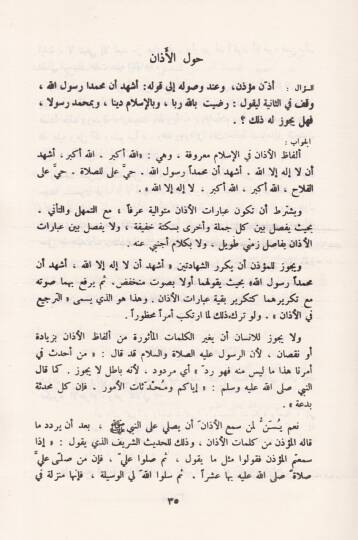 حول الأذان
السؤال : أذّن مؤذن، وعند وصوله إلى قوله: أشهد أن محمدا رسول الله ،
وقف في الثانية ليقول : رضيت بالله ربا ، وبالإسلام دينا ، وبمحمد رسولا ،
فهل يجوز له ذلك ؟ .
الجواب :
ألفاظ الأذان في الإسلام معروفة ، وهي : «الله أكبر . الله أكبر . أشهد
أن لا إله إلا الله . أشهد أن محمداً رسول الله . حيَّ على للصلاة . حيَّ على
الفلاح ، الله أكبر ، الله أكبر . لا إله إلا الله » .
ويشترط أن تكون عبارات الأذان متوالية عرفاً » مع التمهل والتأني .
بحيث يفصل بين كل جملة وأخرى بسكتة خفيفة ، ولا يفصل بين عبارات
الأذان بفاصل زمني طويل ، ولا بكلام أجنبي عنه .
ويجوز للمؤذن أن يكرر الشهادتين « أشهد أن لا إله إلا الله ، أشهد أن
محمداً رسول الله» بحيث يقولهما أولا بصوت منخفض. ثم يرفع بهما صوته
مع تكريرهما كتكرير بقية عبارات الأذان . وهذا هو الذي يسمى « الترجيع
في الأذان » . ولو ترك ذلك لما ارتكب أمراً محظوراً .
ولا يجوز للانسان أن يغير الكلمات المأثورة من ألفاظ الأذان بزيادة
أو نقصان ، لأن الرسول عليه الصلاة والسلام قد قال : « من أحدث في
أمرنا هذا ما ليس منه فهو ردّ » أي مردود ، لأنه باطل لا يجوز . كما قال
النبي صلى الله عليه وسلم : « إياكم ومُحْدَثات الأمور . فإن كل محدثة
بدعة » .
نعم يُسَنّ لمن سمع الأذان أن يصلي على النبي ﷺ ، بعد أن يردد ما
قاله المؤذن من كلمات الأذان ، وذلك للحديث الشريف الذي يقول : « إذا
سمعتم المؤذن فقولوا مثل ما يقول ، ثم صلوا عليّ ، فإن من صلّى عليَّ
صلاةً صلى الله عليه بها عشراً . ثم سلوا الله لي الوسيلة ، فإنها منزلة في
٣٥